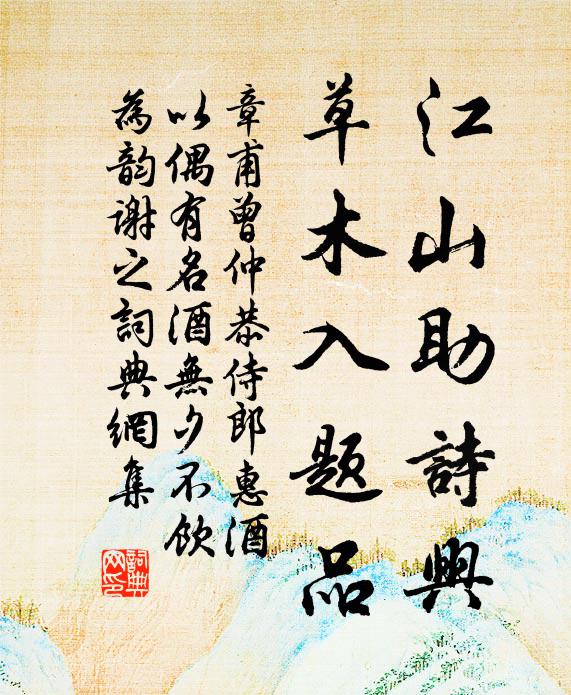 江山助詩興
草木入題品
章甫曾仲恭侍郎惠酒
以偶有名酒無夕不飲
為韵謝之詞典網集
詞典
网印